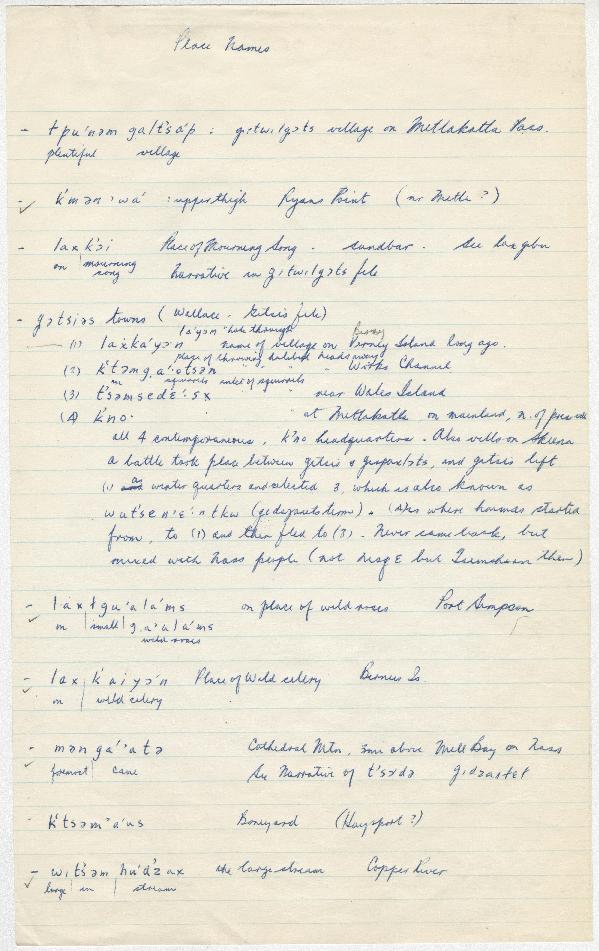 Place Names
- łpu'nəm gałts'áp : gɪtwɪlgɔts village on Metlakatla Pass.
plentiful village
- k'mən'wá : upper thigh Ryans Point (nr Metla ?)
- lax k'ɔi Place of Mourning Song - sandbar. See lax gibu
on | mourning song narrative in gɪtwɪlgɔts file
- gətsiəs towns (Wallace - Gitsis file)
la'yən "hole through"
(1) laxka'yən name of village on Finney Island long ago.
place of throwing halibut heads away
(2) k'təmga'otsən " " " Works Channel
in squirrels inlet of squirrels
(3) t'səmsɛdɛ'sx " near Wales Island
(4) k'no· " at Metlakatla on mainland, n. of
all 4 contemporaneous, k'no headquarters. Also vills on Skeena
a battle took place between gitsis & and gitsis left
(1) as winter quarters and selected 3, which is also known as
(4) is where started
from, to (1) and then fled to (3). Never came back, but
mixed with Nass people (not but Tsimshian then)
- laxłgu'alá'ms on place of wild roses Port Simpson
on | small | g.a'alá'ms
wild roses
- lax k'aiyɔ'n Place of Wild celery Birnie Is.
on | wild celery
- mənga''atə Cathedral Mtn, 3mi above Mill Bay on Nass
foremost | cane See Narrative of
- k'tsəm'a'us Boneyard (Haysport?)
- wɪts'əm hú'dzax the large stream Copper River
large | in | stream